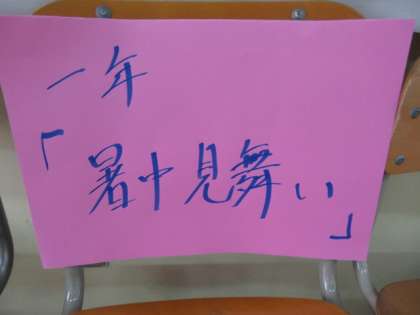 一年
「暑中見舞い」